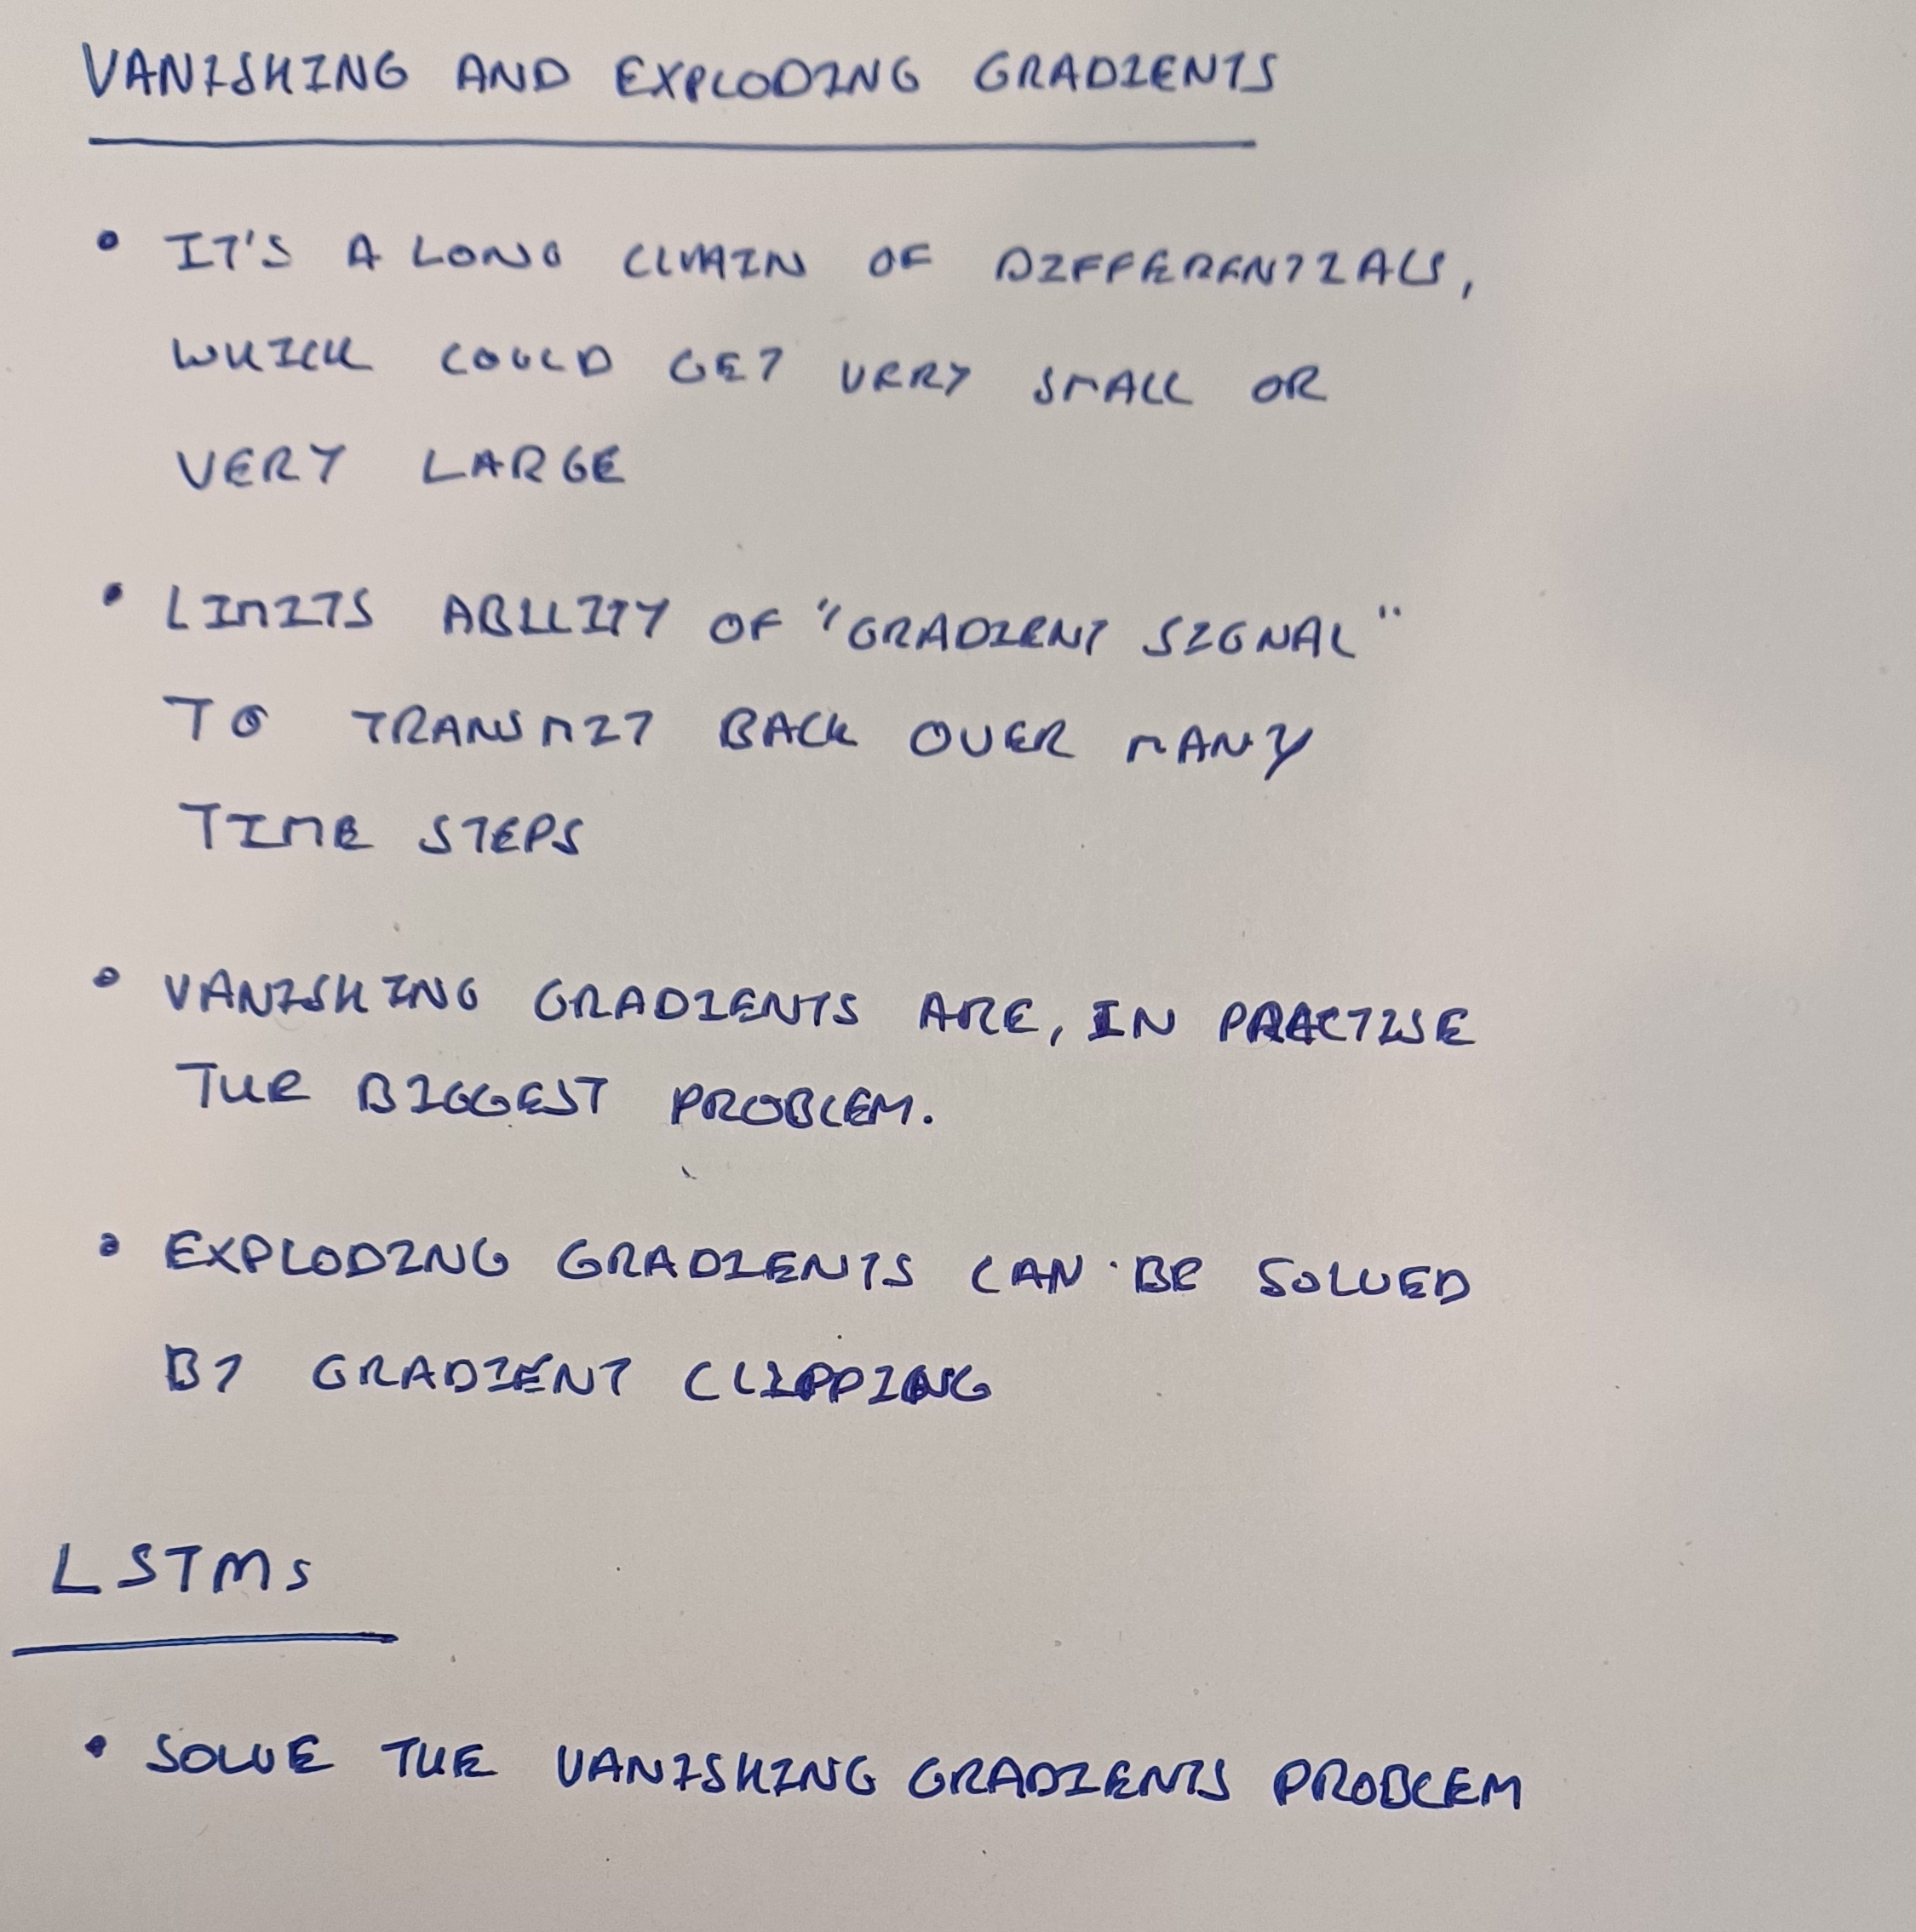 VANISHING AND EXPLODING GRADIENTS
• IT'S A LONG CHAIN OF DIFFERENTIALS,
WHICH COULD GET VERY SMALL OR
VERY LARGE
• LIMITS ABILITY OF "GRADIENT SIGNAL"
TO TRANSMIT BACK OVER MANY
TIME STEPS
• VANISHING GRADIENTS ARE, IN PRACTISE
THE BIGGEST PROBLEM.
• EXPLODING GRADIENTS CAN BE SOLVED
BY GRADIENT CLIPPING
LSTMs
• SOLVE THE VANISHING GRADIENTS PROBLEM